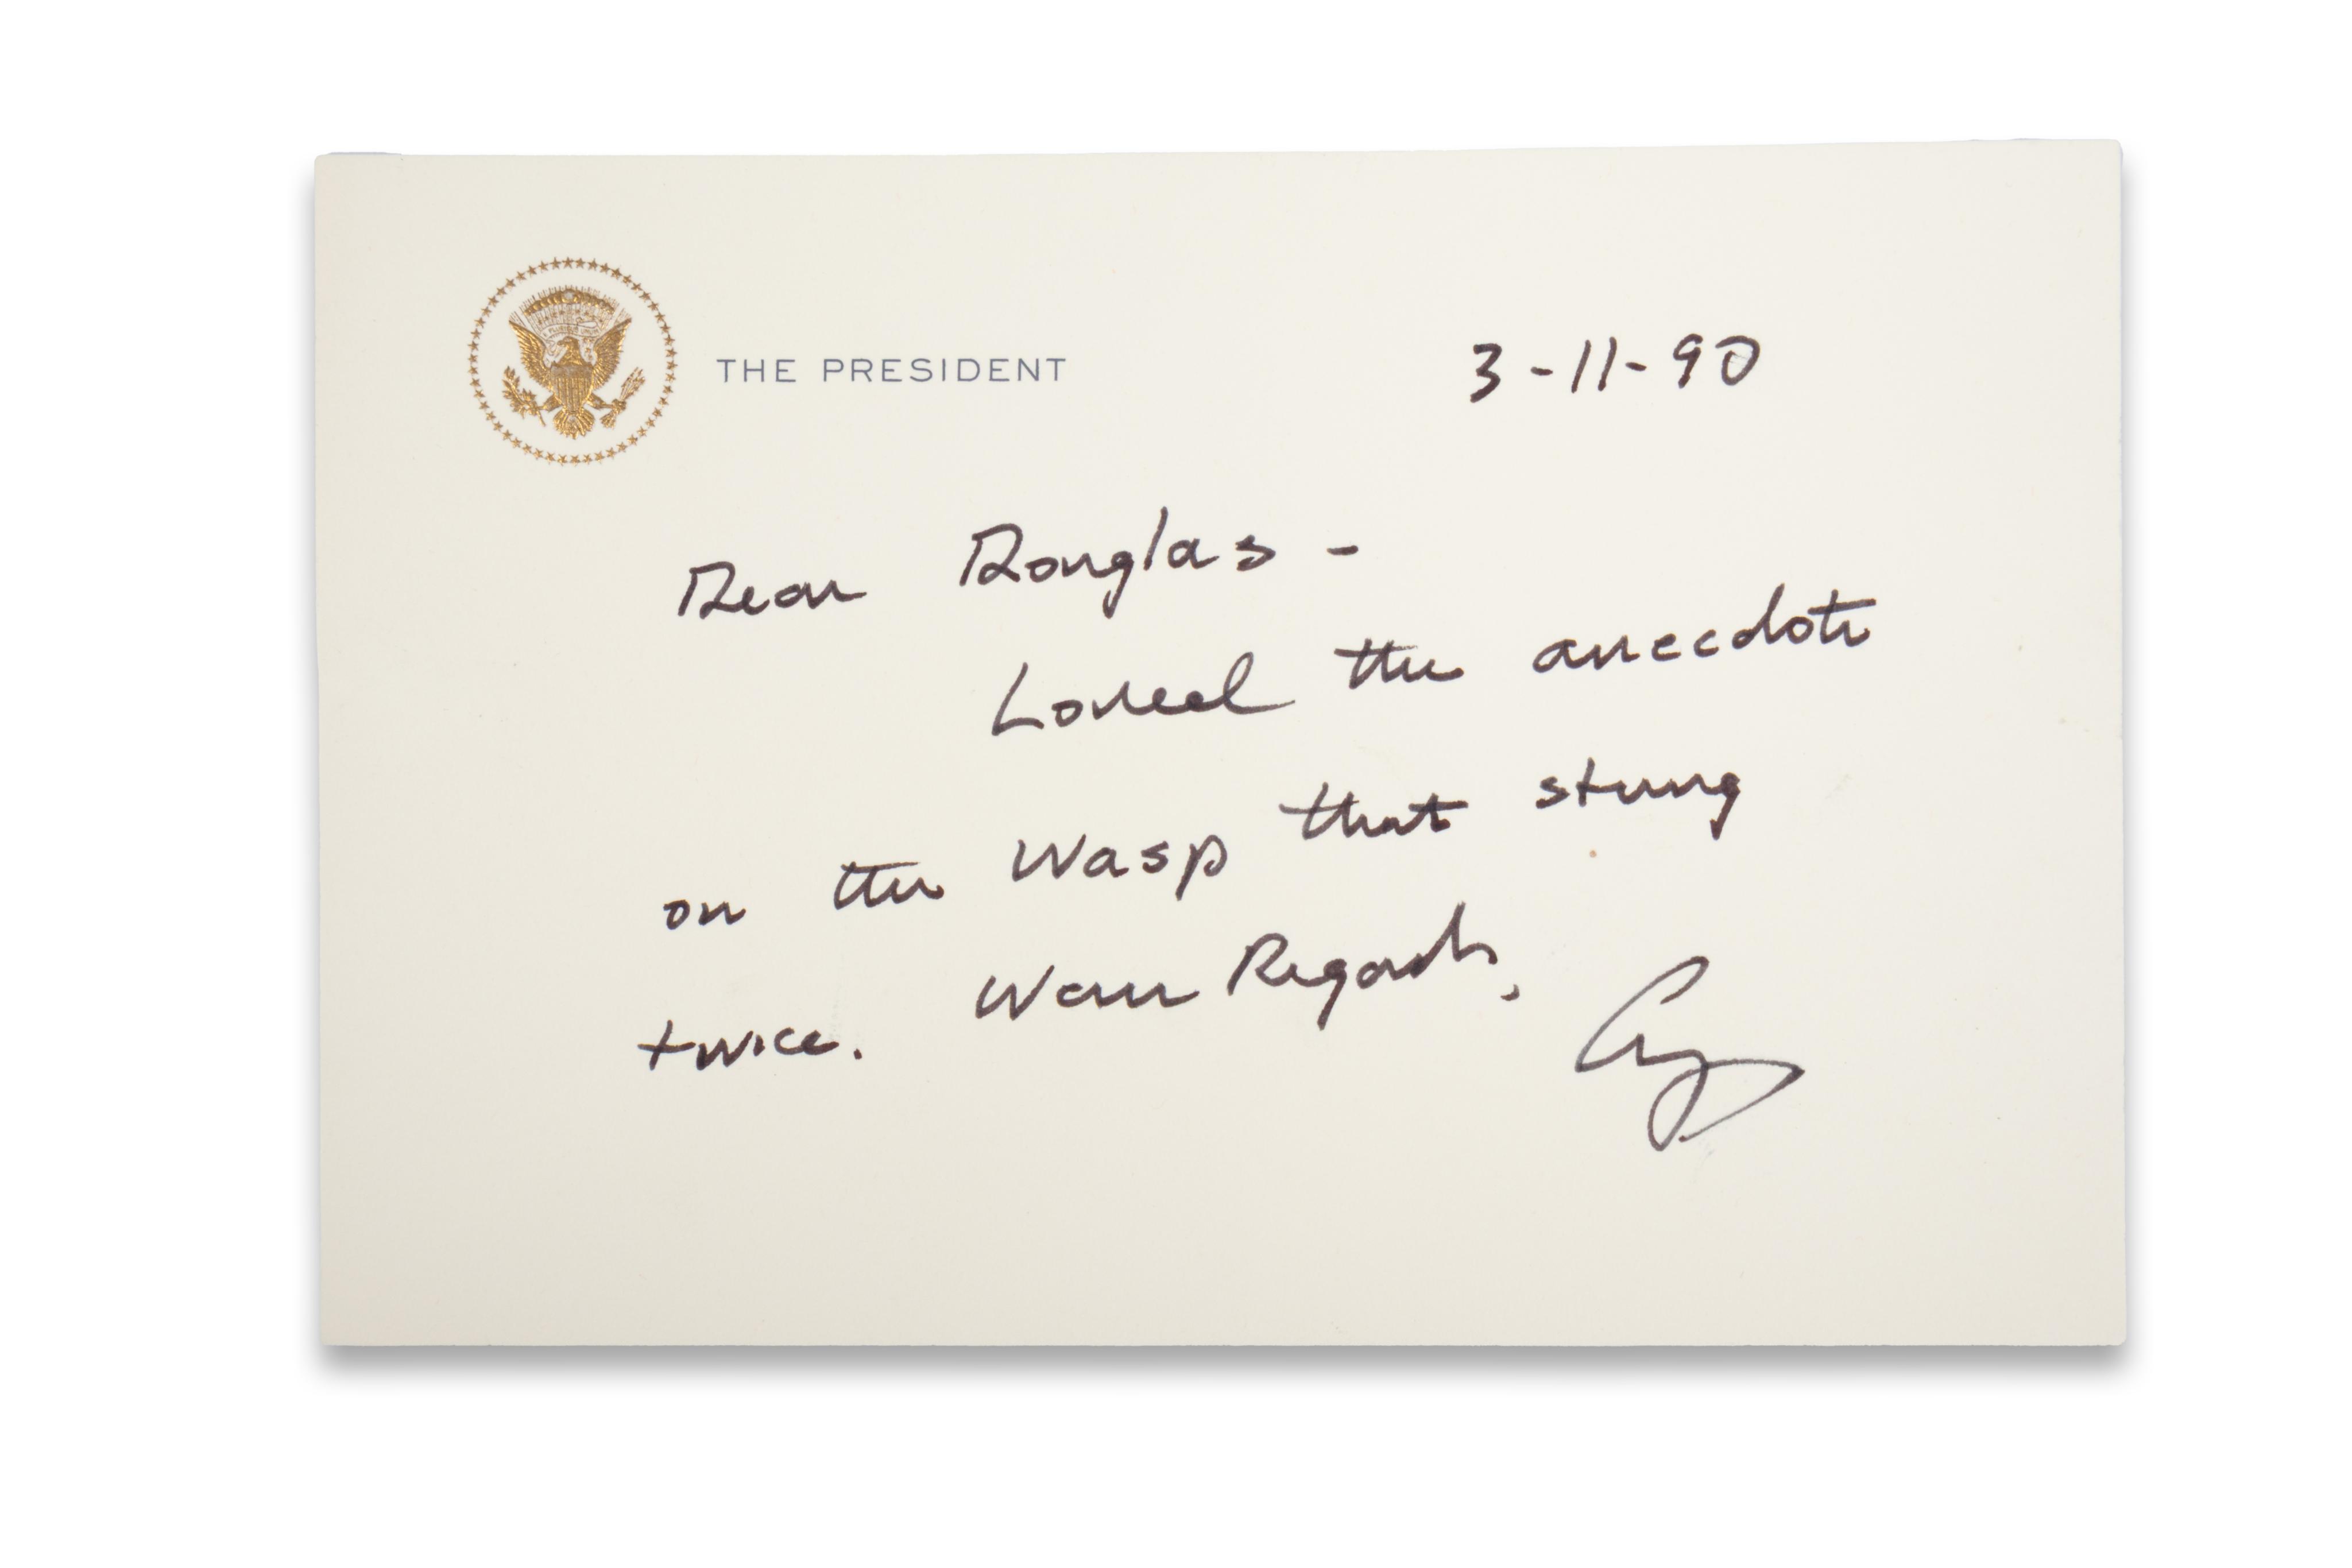 THE PRESIDENT
3-11-90
Dear Douglas -
Loved the anecdote
on the Wasp that stung
twice. Warm Regards,